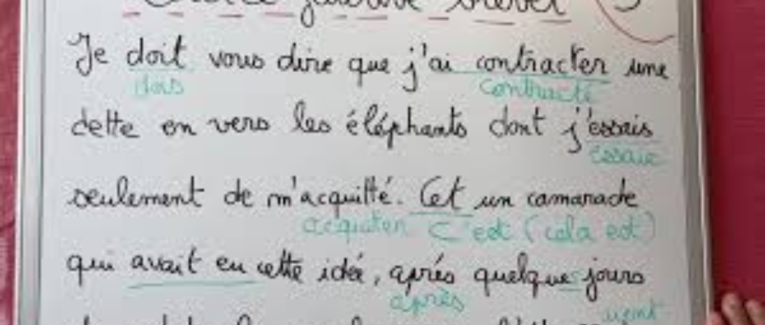 Je doit vous dire que j'ai contracter une
dois contracté
dette en vers les éléphants dont j'essais
essaie
seulement de m'acquitté. Cet un camarade
acquitter C'est (cela est)
qui avait eu cette idée, aprés quelque jours
après